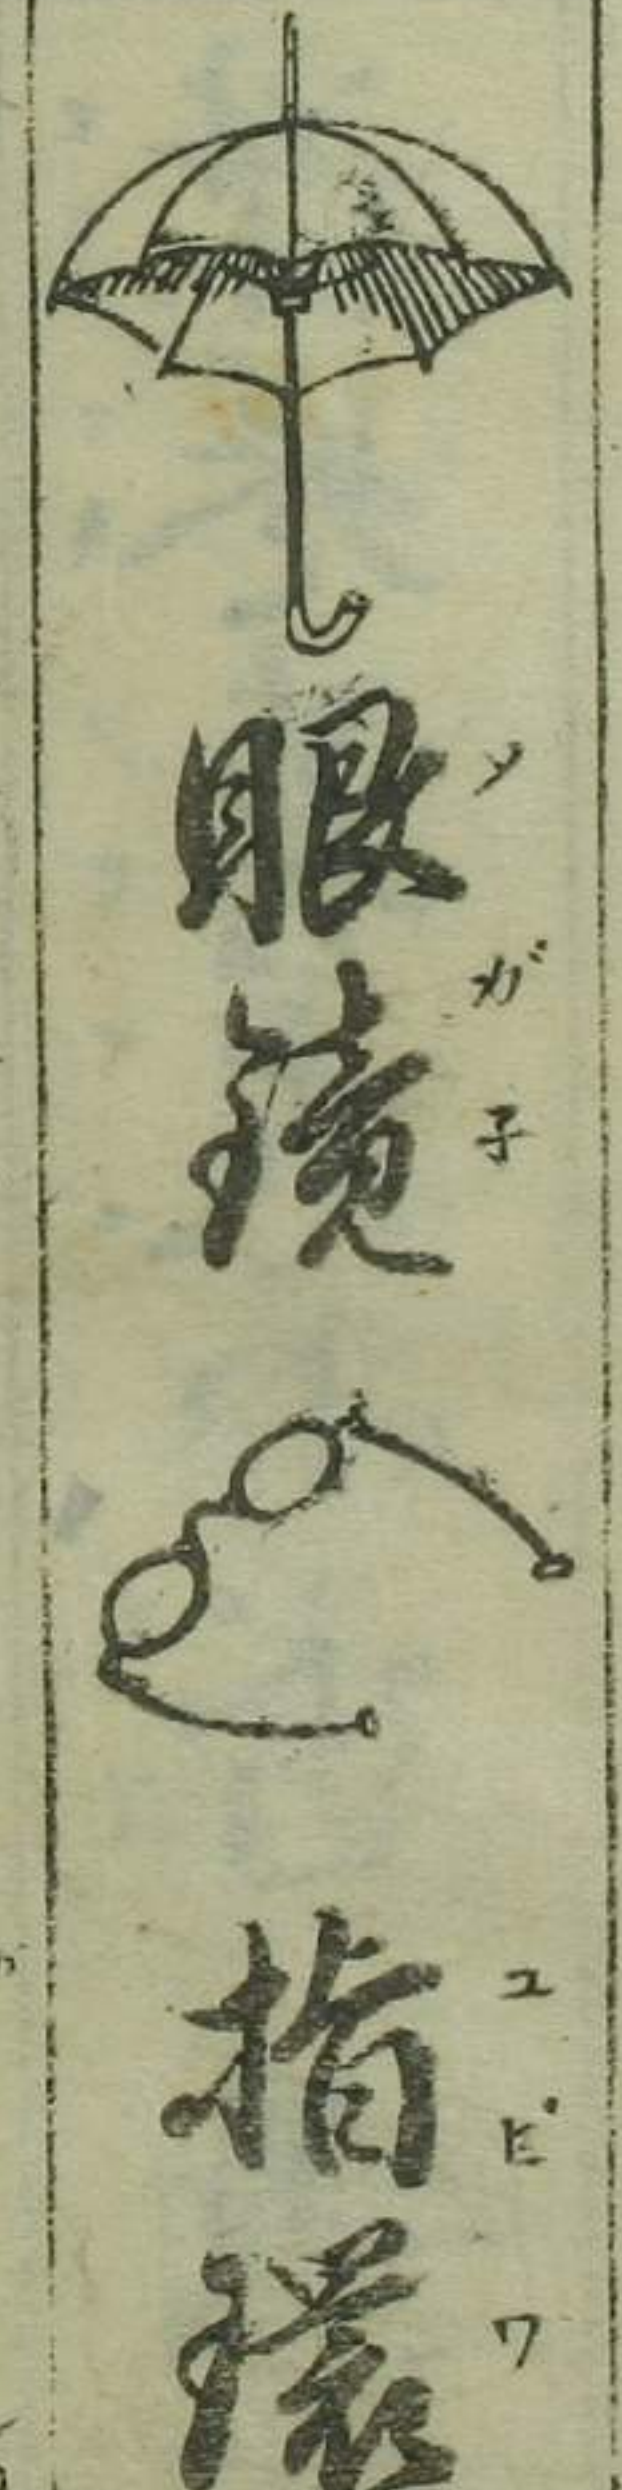 眼鏡
メガ子
指環
ユビワ